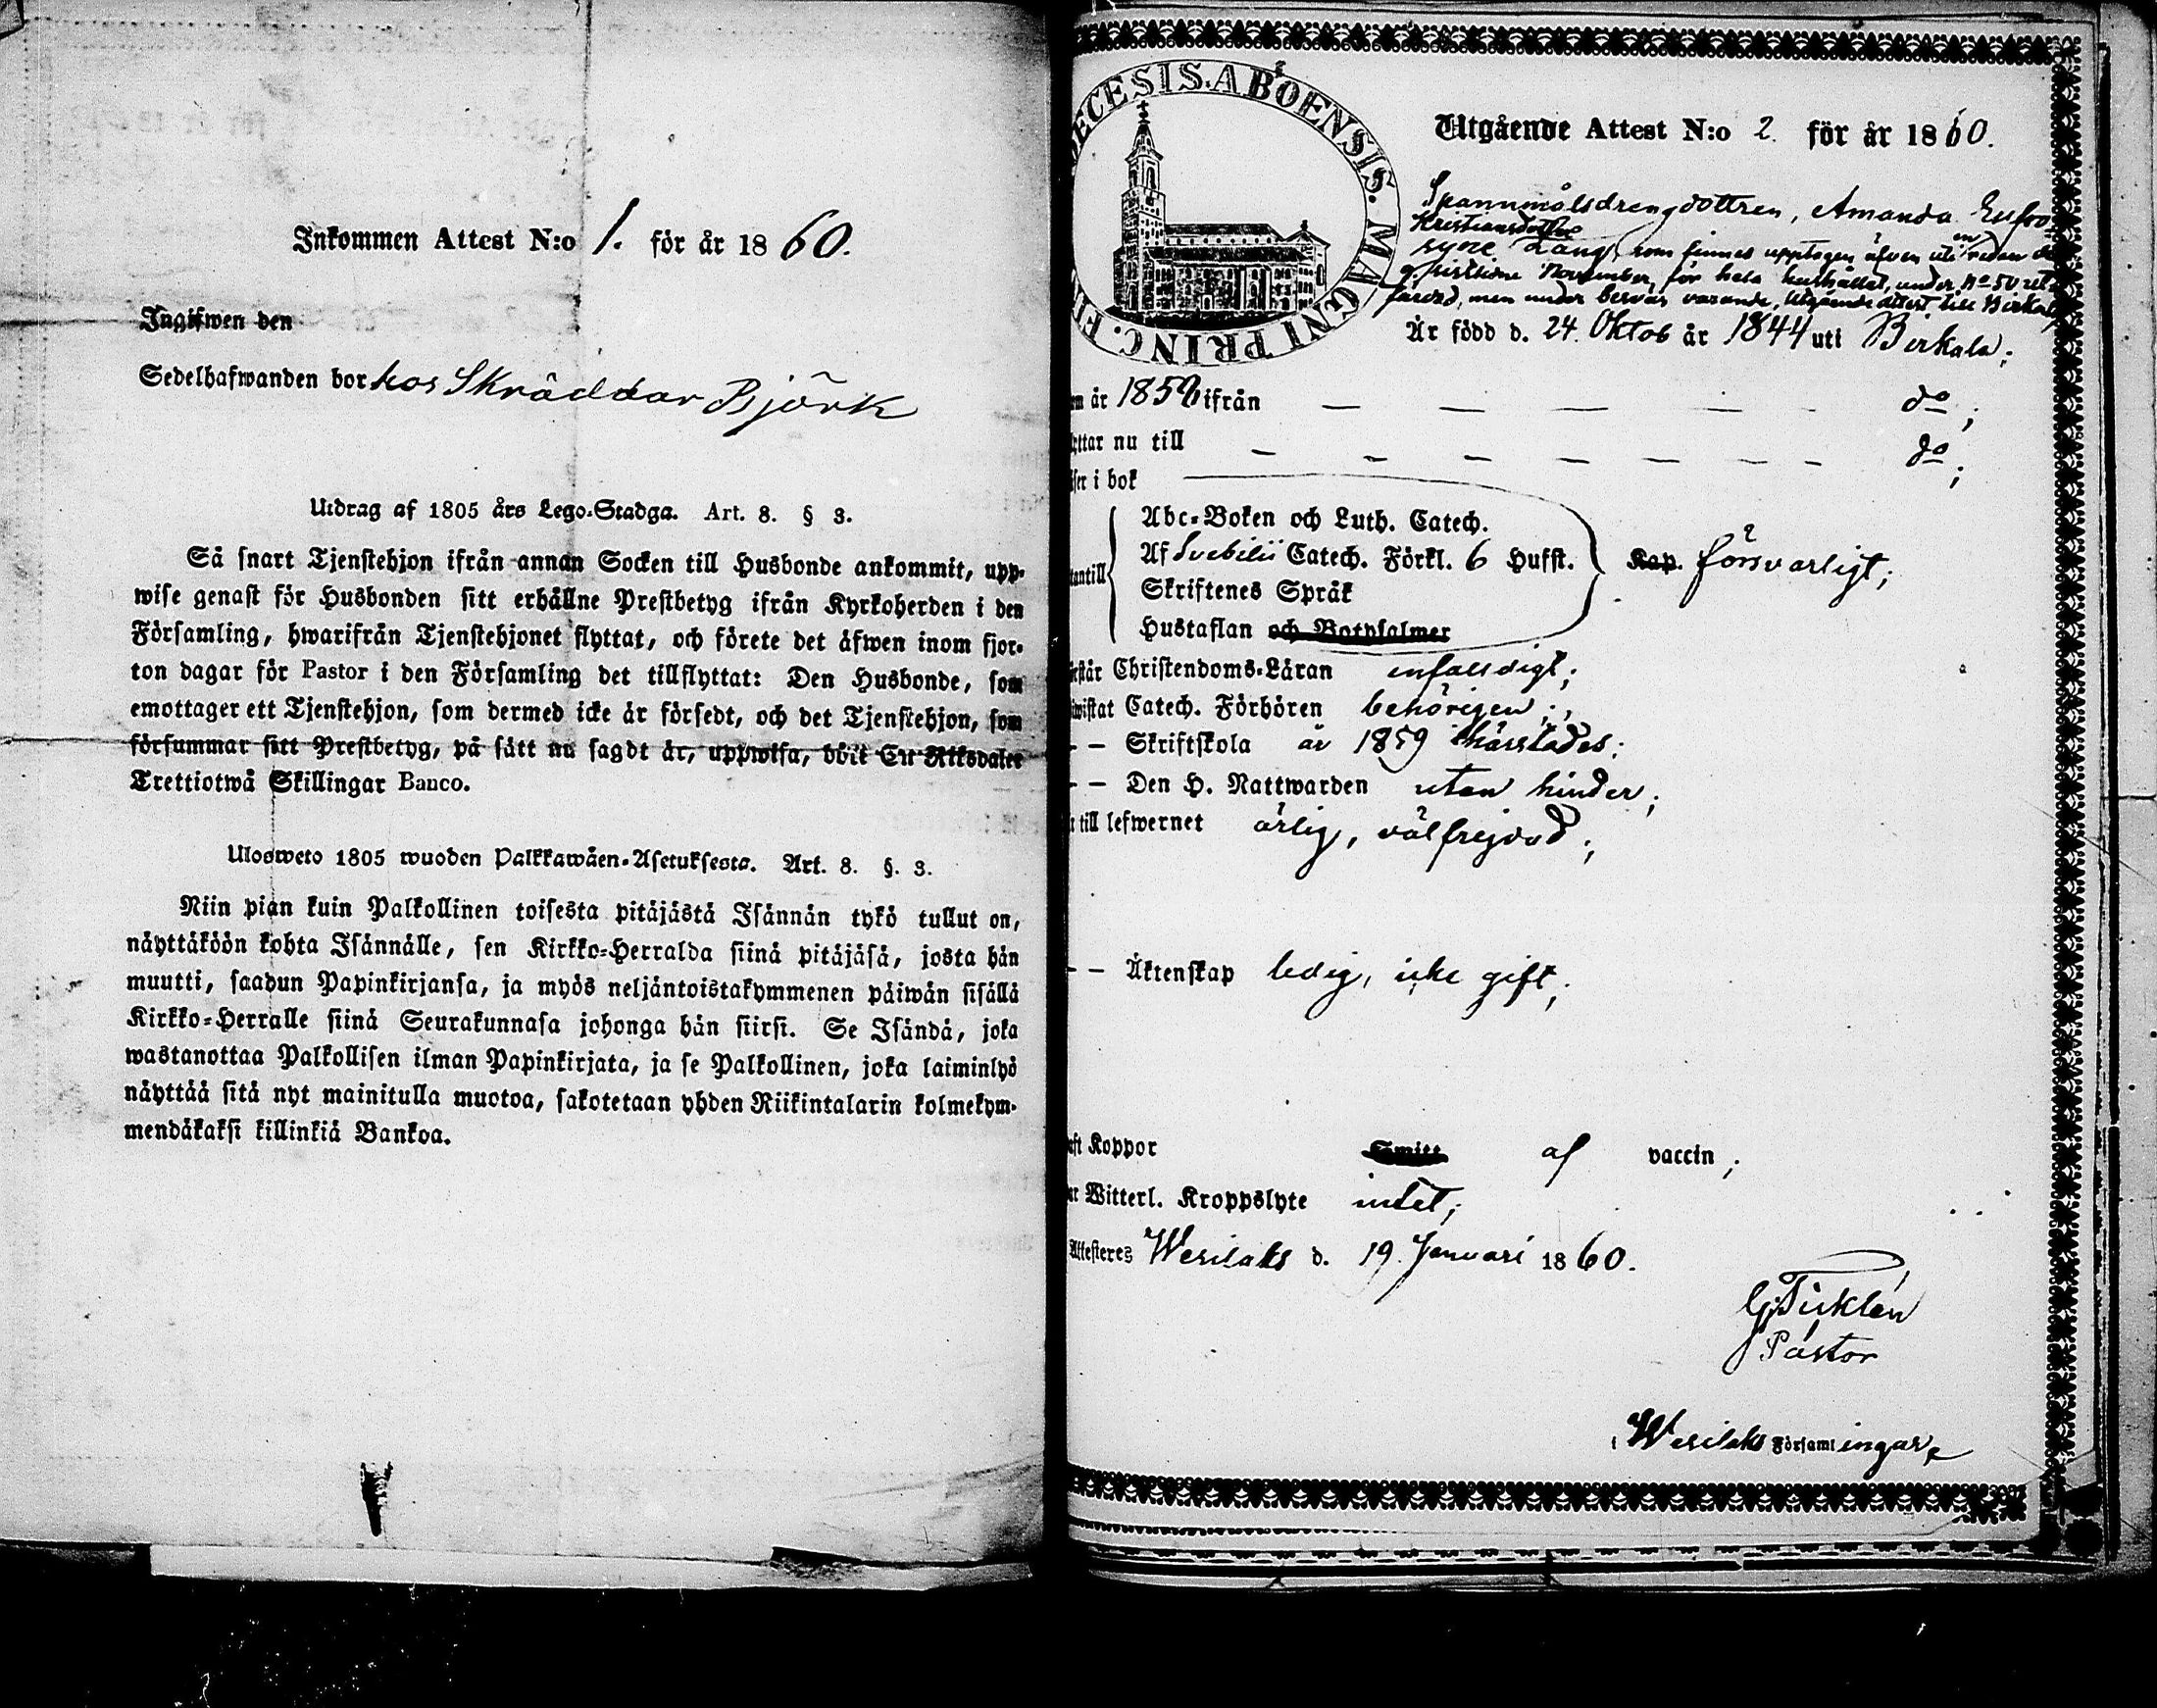 Inkommen Attest N:o 1. för år 1860.
Ingifwen den
Sedelhafwanden bor hos Skräddar Björk
Utdrag af 1805 års Lego-Stadga. Art. 8. § 3.
Så snart Tjenstehjon ifrån annan Socken till Husbonde ankommit, upp-
wise genast för Husbonden sitt erhållne Prestbetyg ifrån Kyrkoherden i den
Församling, hwarifrån Tjenstehjonet flyttat, och förete det äfwen inom fjor-
ton dagar för Pastor i den Församling det tillflyttat: Den Husbonde, som
emottager ett Tjenstehjon, som dermed icke är försedt, och det Tjenstehjon, som
försummar sitt Prestbetyg, på sätt nu sagdt är, uppwisa, böte En Riksdaler
Trettiotwå Skillingar Banco.
Ulosweto 1805 wuoden Palkkawäen-Asetuksesta. Art. 8. §. 3.
Niin pian kuin Palkollinen toisesta pitäjästä Isännän tykö tullut on,
näyttäköön kohta Isännälle, sen Kirkko-Herralda siinä pitäjäsä, josta hän
muutti, saadun Papinkirjansa, ja myös neljäntoistakymmenen päiwän sisällä
Kirkko-Herralle siinä Seurakunnasa johonga hän siirsi. Se Isändä, joka
wastanottaa Palkollisen ilman Papinkirjata, ja se Palkollinen, joka laiminlyö
näyttää sitä nyt mainitulla muotoa, sakotetaan yhden Riikintalarin kolmekym-
mendäkaksi killinkiä Bankoa.
ECESIS. ABOENSIS. MAGNI PRINC. FI
Utgående Attest N:o 2. för år 1860.
Spannmålsdrengdottren, Amanda Eufro-
Kristiansdotter
syne Lång, som finnes upptagen äfven uti en redan
November, för hela hushållet, under No 50
färdad, men under varande, Utgående attest till Birkala
Är född d. 24. Oktob år 1844 uti Birkala;
m år 1859 ifrån — — — — — do;
yttar nu till — — — — — — do;
ser i bok
Abc-Boken och Luth. Catech.
Af Svebilii Catech. Förkl. 6 Hufst. Kap. försvarligt;
antill
Skriftenes Språk
Hustaflan och Botpsalmer
rstår Christendoms-Läran enfaldigt;
wistat Catech. Förhören behörigen;
— — Skriftskola år 1859 härstädes;
— — Den H. Nattwarden utan hinder;
till lefwernet ärlig, välfrejdad;
— — Äktenskap ledig, icke gift;
ft Koppor Smitt af vaccin;
er Witterl. Kroppslyte intet;
Attesteres Wesilaks d. 19. Januari 1860.
G Ticklén
Pastor
i Wesilaks Församlingar